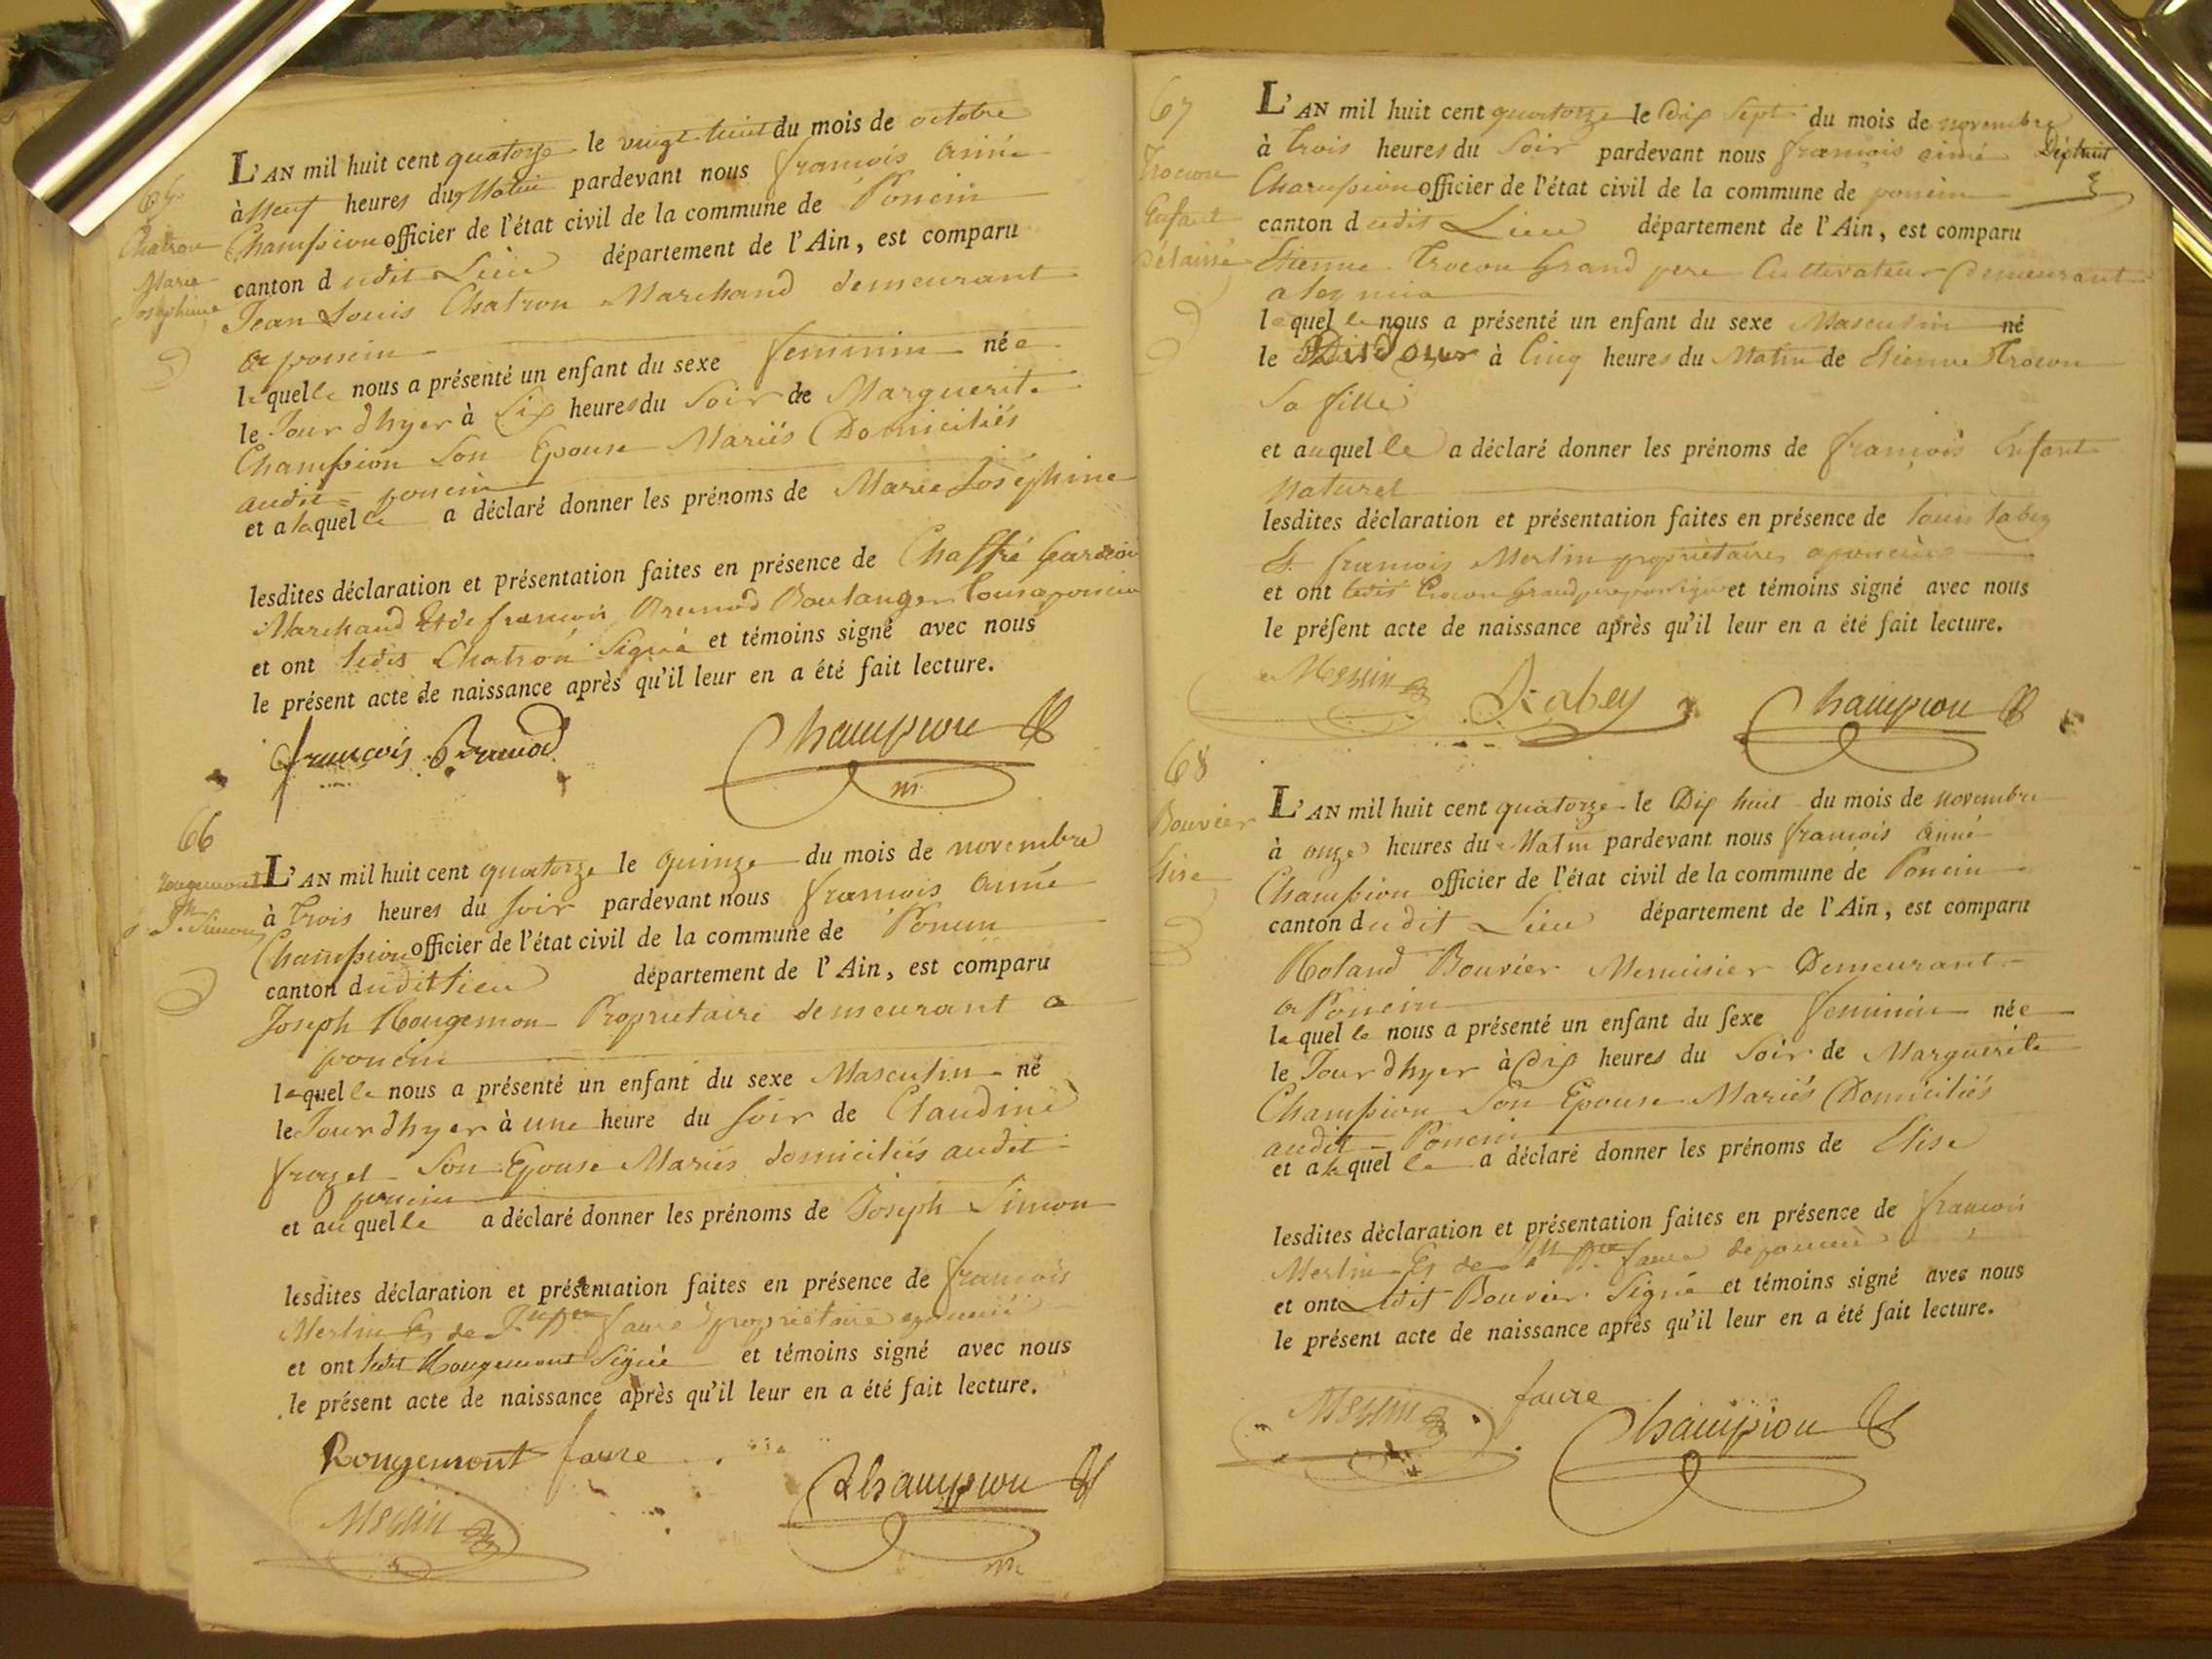 65
Chatron
Marie
Joséphine
L'AN mil huit cent quatorze le vingt huit du mois de octobre
à Neuf heures du Matin pardevant nous françois Aimé
Champion officier de l'état civil de la commune de Poncin
canton dudit Lieu département de l'Ain, est comparu
Jean Louis Chatron Marchand demeurant
a poncin
lequelle nous a présenté un enfant du sexe feminin née
le Jour dhyer à Six heures du Soir de Marguerite
Champion Son Epouse Mariés Domiciliés
audit poncin
et a laquelle a déclaré donner les prénoms de Marie Joséphine
lesdites déclaration et présentation faites en présence de Chaffré
Marchand Et de francois Brunod Boulanger tous a poncin
et ont ledit Chatron Signé et témoins signé avec nous
le présent acte de naissance après qu'il leur en a été fait lecture.
françois Brunod Champion
66
rougemont
Jh Simon
L'AN mil huit cent quatorze le quinze du mois de novembre
à trois heures du soir pardevant nous francois Aimé
Champion officier de l'état civil de la commune de Poncin
canton dudit lieu département de l'Ain, est comparu
Joseph Rougemon Proprietaire demeurant a
poncin
lequelle nous a présenté un enfant du sexe Masculin né
le Jour dhyer à une heure du soir de Claudine
frazel Son Epouse Mariés domiciliés audit
poncin
et au quelle a déclaré donner les prénoms de Joseph Simon
lesdites déclaration et présentation faites en présence de francois
Merlin Et de faure proprietaire a poncin
et ont ledit Rougemont Signé et témoins signé avec nous
le présent acte de naissance après qu'il leur en a été fait lecture.
Rougemont faure
Merlin Champion
67
Trocon
Enfant
Délaissé
L'AN mil huit cent quatorze le Dix Sept du mois de novembre
à trois heures du Soir pardevant nous francois aimé
Champion officier de l'état civil de la commune de poncin
canton dudit Lieu département de l'Ain, est comparu
Etienne Trocon Grand pere Cultivateur Demeurant
a leymia
lequelle nous a présenté un enfant du sexe Masculin né
le Dudour à Cinq heures du Matin de Etienne Trocon
Sa fille
et auquelle a déclaré donner les prénoms de francois Enfant
Naturel
lesdites déclaration et présentation faites en présence de louis labey
Et francois Merlin propriétaires a poncin
et ont ledit Trocon Grand pere et témoins signé avec nous
le présent acte de naissance après qu'il leur en a été fait lecture.
Merlin Labey Champion
68
Bouvier
Elise
L'AN mil huit cent quatorze le Dix huit du mois de novembre
à onze heures du Matin pardevant nous francois Aimé
Champion officier de l'état civil de la commune de Poncin
canton dudit Lieu département de l'Ain, est comparu
Roland Bouvier Menuisier Demeurant
a Poncin
lequelle nous a présenté un enfant du sexe feminin née
le Jour dhyer à Dix heures du Soir de Marguerite
Champion Son Epouse Mariés Domiciliés
audit Poncin
et a laquelle a déclaré donner les prénoms de Elise
lesdites déclaration et présentation faites en présence de francois
Merlin Et de faure de poncin
et ont Ledit Bouvier Signé et témoins signé avec nous
le présent acte de naissance après qu'il leur en a été fait lecture.
Merlin faure Champion